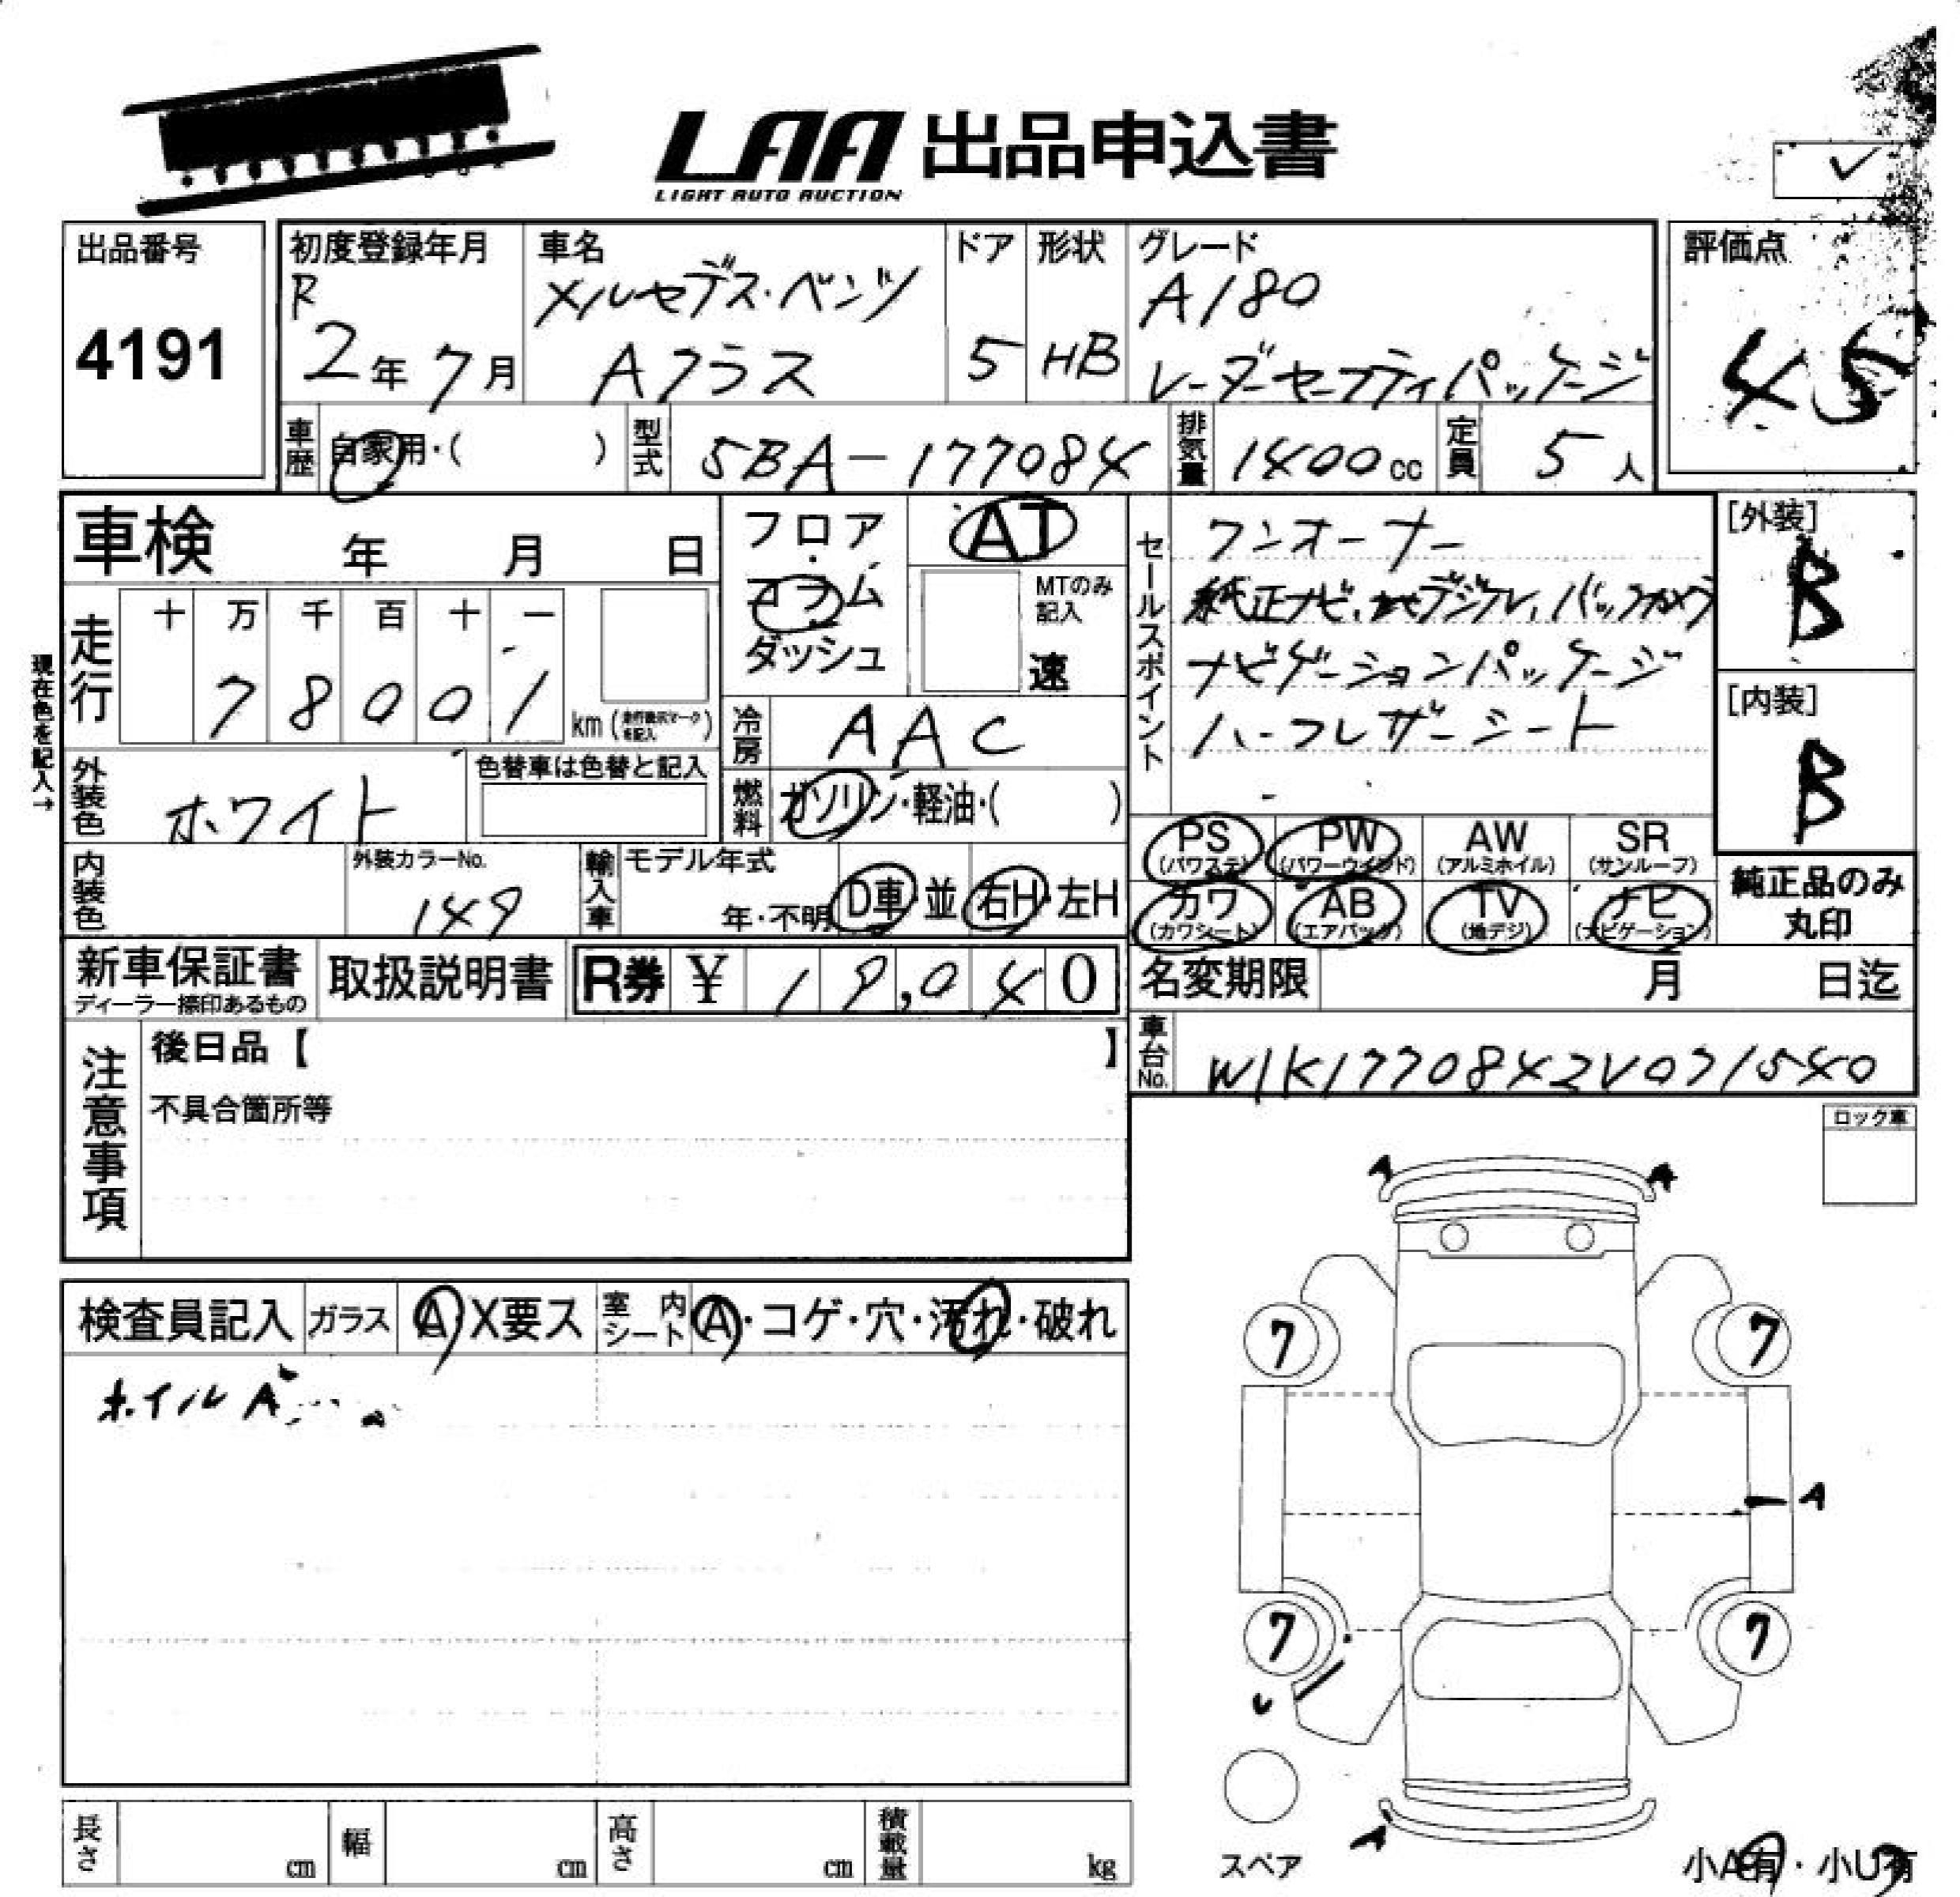 LAA 出品申込書
LIGHT AUTO AUCTION
出品番号
4191
初度登録年月
R
2年7月
車名
メルセデス・ベンツ
Aクラス
ドア
5
形状
HB
グレード
A180
レーダーセーフティパッケージ
評価点
45
車歴
自家用・( )
型式
5BA-177084
排気量
1400cc
定員
5人
車検 年 月 日
フロア・コラム
ダッシュ
AT
MTのみ記入
速
セールスポイント
ワンオーナー
純正ナビ、地デジTV、バックカメラ
ナビゲーションパッケージ
ハーフレザーシート
[外装]
B
[内装]
B
現在色を記入→
走行
十 万 千 百 十 一
7 8 0 0 1
km (走行表示マークを記入)
冷房
AAC
外装色
ホワイト
色替車は色替と記入
燃料
ガソリン・軽油・( )
PS (パワステ)
PW (パワーウインド)
AW (アルミホイル)
SR (サンルーフ)
カワ (カワシート)
AB (エアバッグ)
TV (地デジ)
ナビ (ナビゲーション)
純正品のみ
丸印
内装色
外装カラーNo.
149
輸入車
モデル年式
年・不明
D車・並
右H・左H
新車保証書
ディーラー捺印あるもの
取扱説明書
R券 ¥ 19,040
名変期限 月 日迄
車台No.
W1K1770842V071540
注意事項
後日品【 】
不具合箇所等
ロック車
検査員記入
ガラス
A・X要ス
室内シート
A・コゲ・穴・汚れ・破れ
ホイルA
A A
7 7
A
7 7
U
A
スペア
長さ cm
幅 cm
高さ cm
積載量 kg
小A有・小U有